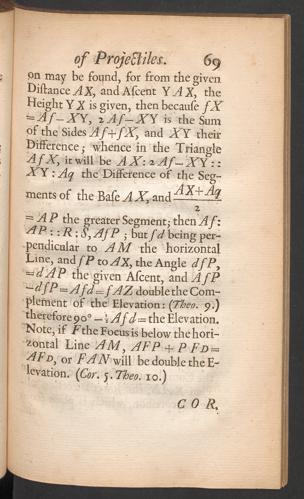 of Projectiles. 69
on may be found, for from the given
Diſtance AX, and Aſcent YAX, the
Height YX is given, then becauſe fX
= Af—XY, 2 Af—XY is the Sum
of the Sides Af+fX, and XY their
Difference; whence in the Triangle
AfX, it will be AX : 2 Af—XY : :
XY : Aq the Difference of the Seg-
ments of the Baſe AX, and AX+Aq
2
= AP the greater Segment; then Af :
AP : : R : S, AfP ; but fd being per-
pendicular to AM the horizontal
Line, and fP to AX, the Angle dfP,
= dAP the given Aſcent, and AfP
—dfP = Afd = fAZ double the Com-
plement of the Elevation: (Theo. 9.)
therefore 90° — ½ Afd = the Elevation.
Note, if F the Focus is below the hori-
zontal Line AM, AFP + PFD =
AFD, or FAN will be double the E-
levation. (Cor. 5. Theo. 10.)
COR,